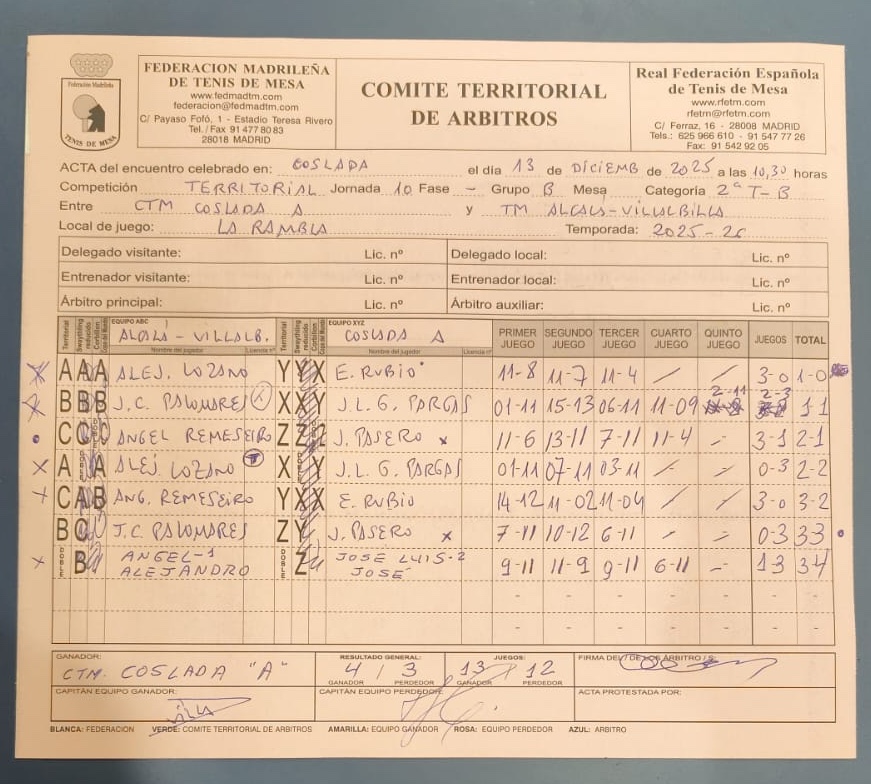 FEDERACION MADRILEÑA
DE TENIS DE MESA
www.fedmadtm.com
federacion@fedmadtm.com
C/ Payaso Fofó, 1 - Estadio Teresa Rivero
Tel./Fax 91 477 80 83
28018 MADRID
Federación Madrileña
TENIS DE MESA
COMITE TERRITORIAL
DE ARBITROS
Real Federación Española
de Tenis de Mesa
www.rfetm.com
rfetm@rfetm.com
C/ Ferraz, 16 - 28008 MADRID
Tels.: 625 966 610 - 91 547 77 26
Fax: 91 542 92 05
ACTA del encuentro celebrado en: COSLADA el día 13 de DICIEMB de 2025 a las 10,30 horas
Competición TERRITORIAL Jornada 10 Fase - Grupo B Mesa Categoría 2ª T-B
Entre CTM COSLADA A y TM ALCALÁ-VILLALBILLA
Local de juego: LA RAMBLA Temporada: 2025-26
Delegado visitante: Lic. nº Delegado local: Lic. nº
Entrenador visitante: Lic. nº Entrenador local: Lic. nº
Árbitro principal: Lic. nº Árbitro auxiliar: Lic. nº
Territorial EQUIPO ABC ALCALÁ-VILLALB. Nombre del jugador Licencia nº Territorial EQUIPO XYZ COSLADA A Nombre del jugador Licencia nº PRIMER JUEGO SEGUNDO JUEGO TERCER JUEGO CUARTO JUEGO QUINTO JUEGO JUEGOS TOTAL
A A A ALEJ. LOZANO Y Y X E. RUBIO 11-8 11-7 11-4 / / 3-0 1-0
B B B J.C. PALOMARES X X Y J.L.G. PARGAS 01-11 15-13 06-11 11-09 2-11 2-3 1-1
C C C ANGEL REMESEIRO Z Z J. PASERO x 11-6 13-11 7-11 11-4 - 3-1 2-1
A A ALEJ LOZANO X Y J.L.G. PARGAS 01-11 07-11 03-11 - - 0-3 2-2
C A B ANG. REMESEIRO Y X X E. RUBIO 14-12 11-02 11-04 / / 3-0 3-2
B C J.C. PALOMARES Z Y J. PASERO x 7-11 10-12 6-11 - - 0-3 33
DOBLE B ANGEL-1 DOBLE Z JOSE LUIS-2 9-11 11-9 9-11 6-11 - 1-3 34
ALEJANDRO JOSE
GANADOR: RESULTADO GENERAL: JUEGOS: FIRMA DEL / DE LOS ÁRBITRO / S:
CTM. COSLADA "A" 4 / 3 13 / 12
GANADOR PERDEDOR GANADOR PERDEDOR
CAPITÁN EQUIPO GANADOR: CAPITÁN EQUIPO PERDEDOR: ACTA PROTESTADA POR:
BLANCA: FEDERACION VERDE: COMITE TERRITORIAL DE ARBITROS AMARILLA: EQUIPO GANADOR ROSA: EQUIPO PERDEDOR AZUL: ARBITRO